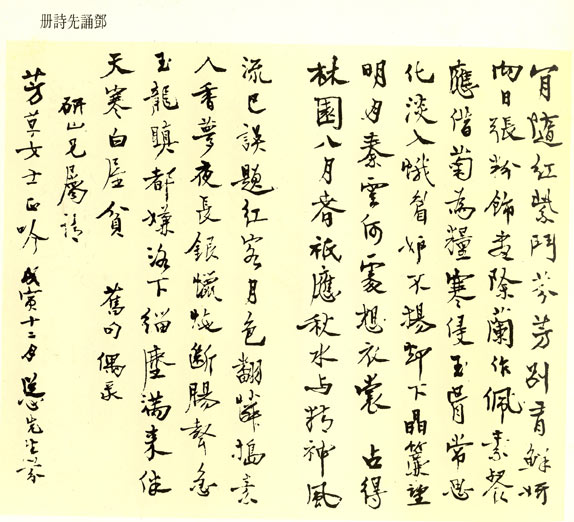 鄧誦先詩册
肯隨紅紫鬥芬芳別有鮮妍
向日張粉飾盡除蘭作佩素餐
應偕菊為糧寒侵玉骨常思
化淡入蛾眉妒不揚卻下晶簾望
明月秦雲何處想衣裳 占得
林園八月春祇應秋水與精神風
流已誤題紅客月色翻憐搗素
人香夢夜長銀蠟炧斷腸聲急
玉龍瞋都嫌洛下緇塵滿來伴
天寒白屋貧 舊句偶录
研山兄屬請
芳草女士正吟 戊寅十二月